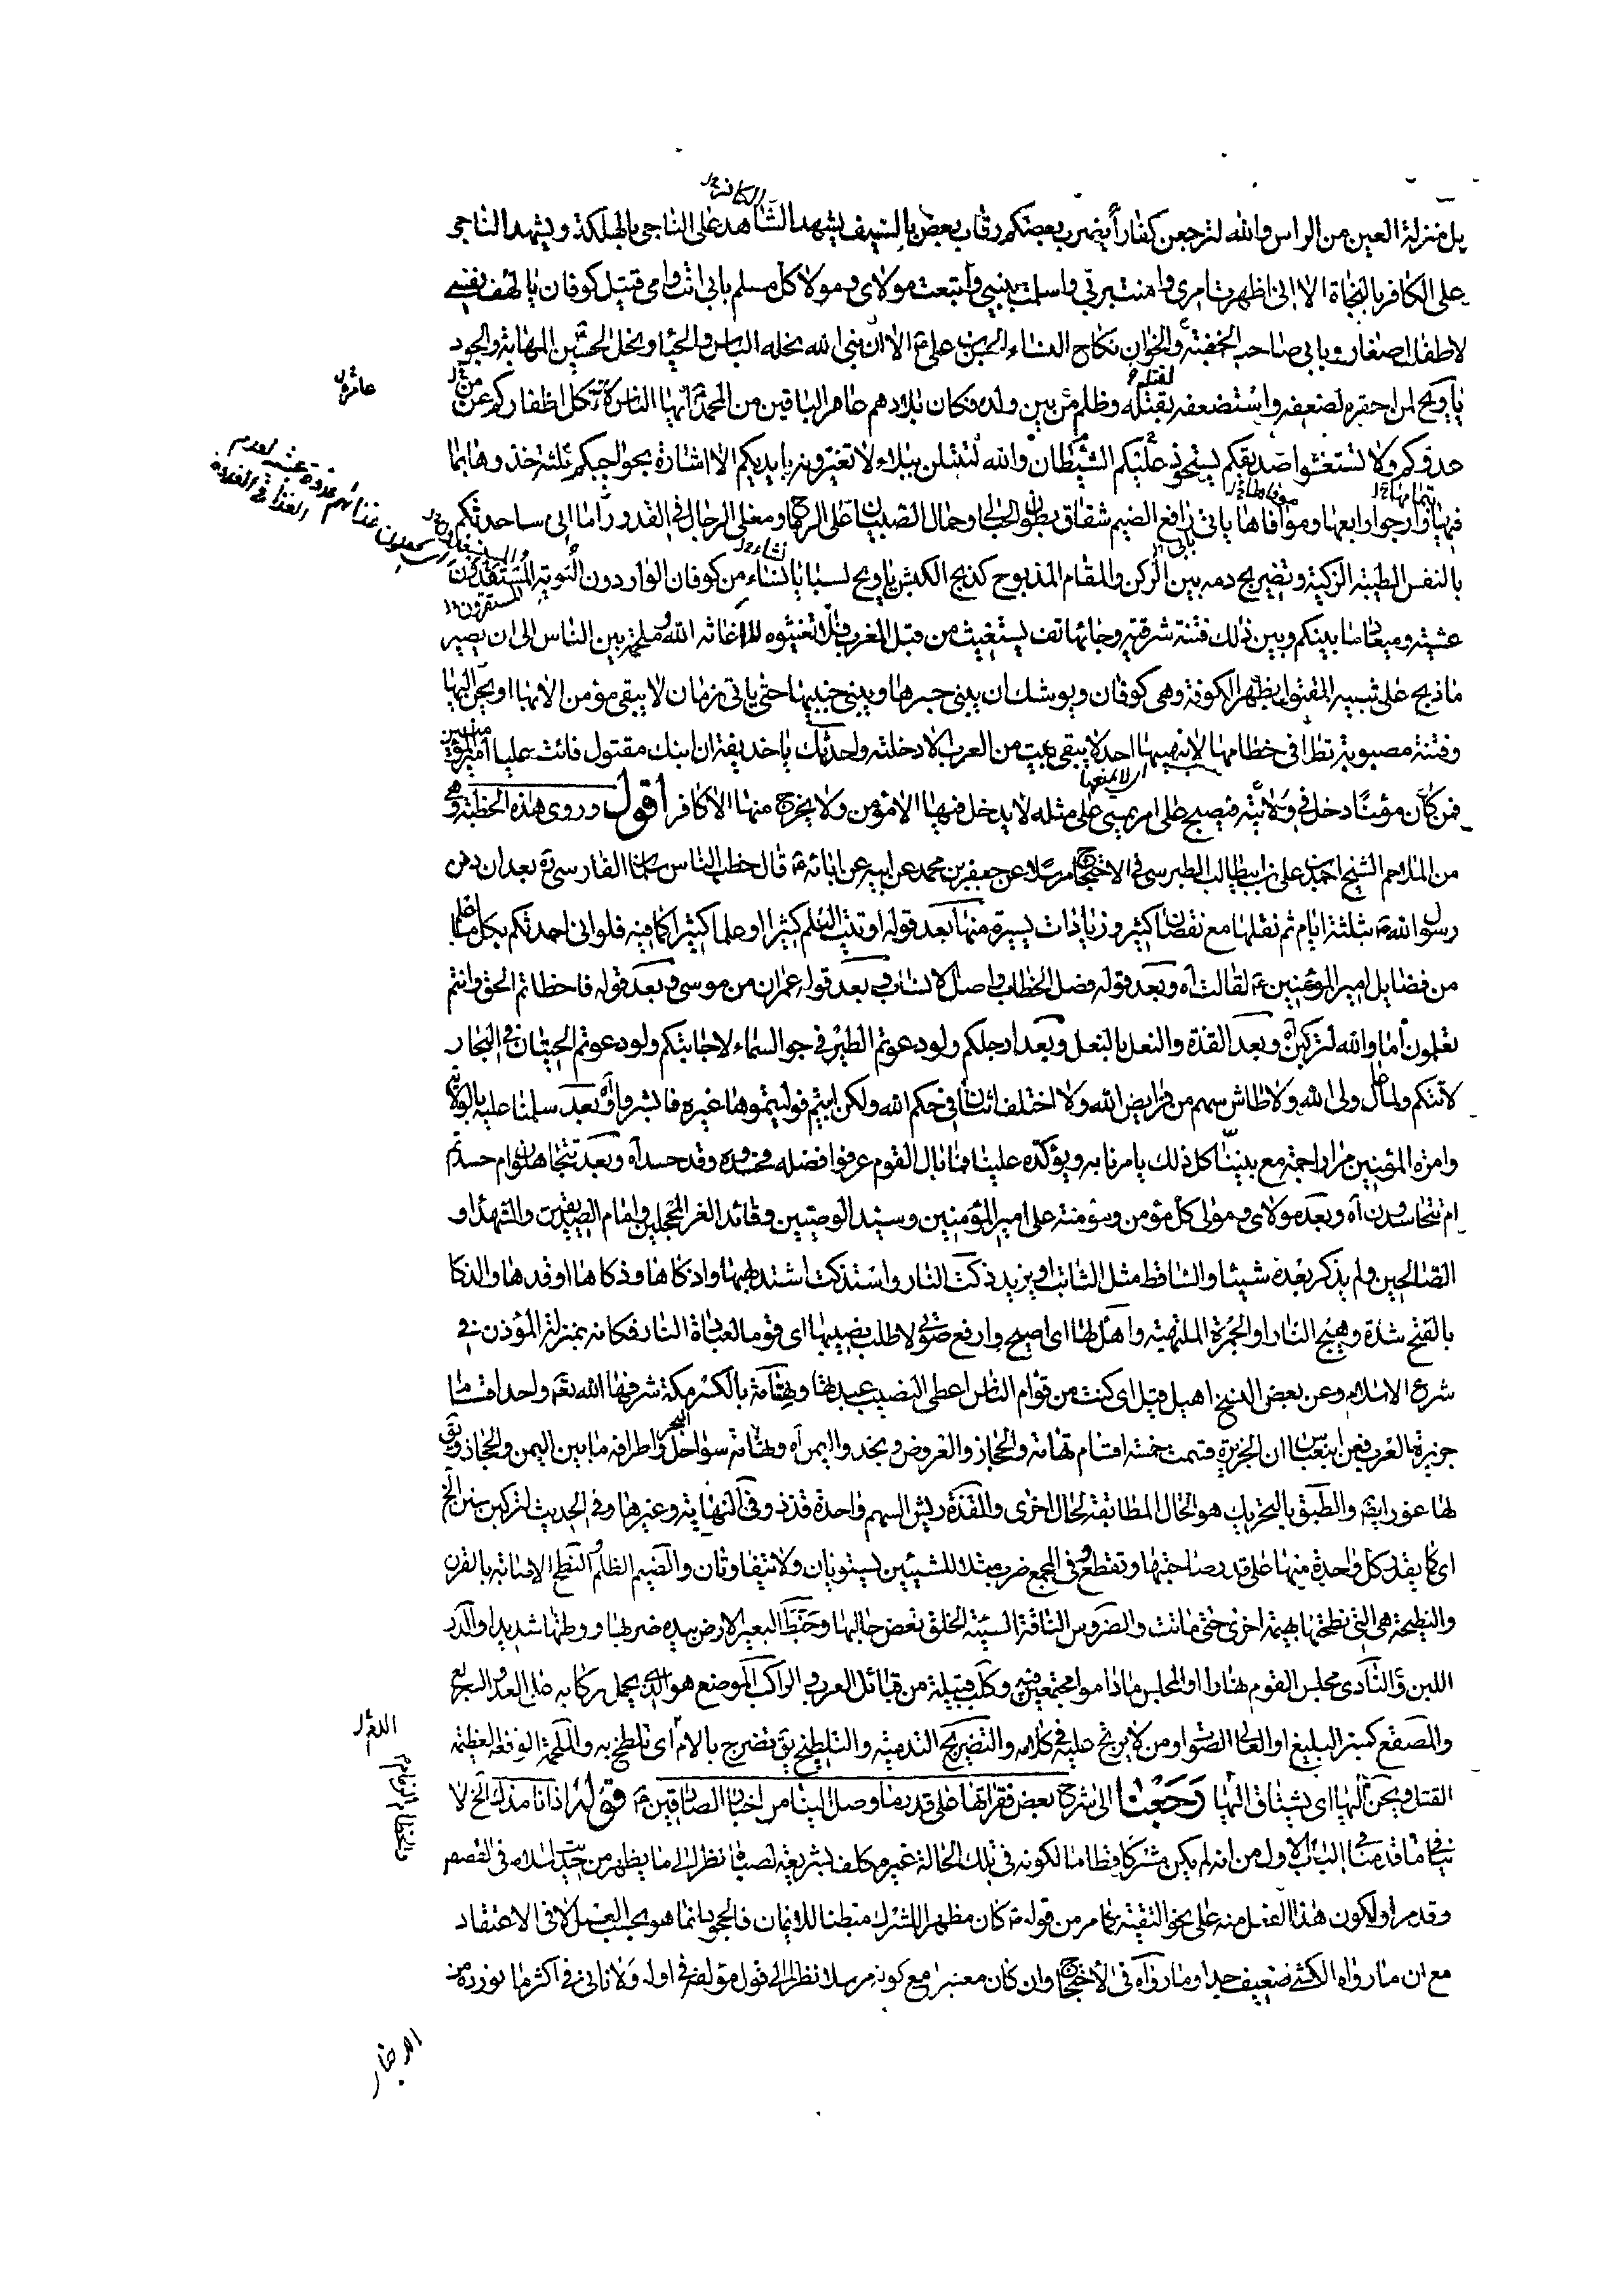 بل منزلة العين من الراس والله لترجعن كفارا يضرب بعضكم رقاب بعض بالسيف يشهد الشاهد على الناجي بالهلكة ويشهد الناجي
على الكافر بالنجاة الا اني اظهرت امري وامنت بربي واسلمت بنبيي واتبعت مولاي ومولا كل مسلم بابي انت وامي قتيل كوفان يا لهف نفسي
لاطفال صغار وبابي صاحب الجفنة والخوان نكاح النساء الحسن بن علي ع الا ان نبي الله نحله الباس والحياء ونحل الحسين المهابة والجود
يا ويح لمن احقره لضعفه واستضعفه بقتله وظلم من بين ولده فكان بلادهم عامر الباقين من ال محمد ايها الناس لا تكل اظفاركم عن
عدوكم ولا تستغشوا صديقكم يستحوذ عليكم الشيطان والله لتبتلن ببلاء لا تغيرونه بايديكم الا اشارة بحواجبكم ثلثة خذوها بما
فيها وارجوا رابعها وموافاها يابى دافع الضيم شقاق بطون الحبالى وحمال الصبيان على الرماح ومغلى الرجال في القدور اما اني ساحدثكم
بالنفس الطيبة الزكية وتضريج دمه بين الركن والمقام المذبوح كذبح الكبش يا ويح لسبايا نساء من كوفان الواردون الثوية المستقدون
عشية وميعاد ما بينكم وبين ذلك فتنة شرقية وجاء هاتف يستغيث من قبل المغرب فلا تغيثوه لا اغاثه الله وملحمة بين الناس الى ان يصير
ما ذبح على شبيه المقتول بظهر الكوفة وهي كوفان ويوشك ان يبنى جسرها ويبنى جنبيها حتى ياتي زمان لا يبقى مؤمن الا بها او يحن اليها
وفتنة مصبوبة تطا في خطامها لا ينهيها احد لا يبقى بيت من العرب الا دخلته واحدثك يا حذيفة ان ابنك مقتول فان عليا امير المؤمنين
فمن كان مؤمنا دخل في ولايته فيصبح على امر يمسي على مثله لا يدخل فيها الا مؤمن ولا يخرج منها الا كافر اقول وروى هذه الخطبة وهي
من الملاحم الشيخ احمد بن علي بن ابيطالب الطبرسي في الاحتجاج مرسلا عن جعفر بن محمد عن ابيه عن ابائه ع قال خطب الناس سلمان الفارسي ره بعد ان دفن
رسول الله ص بثلثة ايام ثم نقلها مع نقصان كثير وزيادات يسيرة منها بعد قوله اوتيت العلم كثيرا او علما كثيرا كما فيه فلو اني احدثكم بكل ما اعلم
من فضايل امير المؤمنين ع لقالت اه وبعد قوله فضل الخطاب واصل الانساب وبعد قوله عمران من موسى وبعد قوله فاخطاتم الحق وانتم
تعلمون اما والله لتركبن اه وبعد القذة والنعل بالنعل وبعد ارجلكم ولو دعوتم الطير في جو السماء لاجابتكم ولو دعوتم الحيتان في البحار
لاتتكم ولما عال ولي الله ولا طاش سهم من فرايض الله ولا اختلف اثنان في حكم الله ولكن ابيتم فوليتموها غيره فابشروا اه وبعد سلمنا عليه بالولاية
وامرة المؤمنين مرارا جمة مع نبينا كل ذلك يامرنا به ويؤكده علينا فما بال القوم عرفوا فضله فحسدوه وقد حسد اه وبعد تتجاهلون ام حسدتم
ام تتحاسدون اه وبعده مولاي ومولى كل مؤمن ومؤمنة علي امير المؤمنين وسيد الوصيين وقائد الغر المحجلين وامام الصديقين والشهداء و
الصالحين ولم يذكر بعده شيئا والساقط مثل الثابت او يزيد ذكت النار واستذكت اشتد لهبها واذكاها وذكاها اوقدها والذكا
بالفتح شدة وهيج النار او الجمرة الملتهبة واهل لها اي اصيح وارفع صوتي لا طلب نصيبها اي قوما لعبادة النار فكانه بمنزلة المؤذن في
شرع الاسلام وعن بعض النسخ اهيل قيل اي كنت من قوام الناس اعطى النصيب عبدتها وتهامة بالكسر مكة شرفها الله تعم واحد اقسام
جزيرة العرب فعن ابن عباس ان الجزيرة قسمت خمسة اقسام تهامة والحجاز والعروض ونجد واليمن اه وتهامة سواحل البحر واطرافه ما بين اليمن والحجاز ويق
لها غور ايضا والطبق بالتحريك هو الحال المطابقة لحال اخرى والقذة ريش السهم واحدة قذذ وفي النهاية وغيرها وفي الحديث لتركبن سنن الخ
اي كما يقدر كل واحدة منها على قدر صاحبتها وتقطع وفي المجمع ضرب مثلا للشيئين يستويان ولا يتفاوتان والضيم الظلم والنطح الاصابة بالقرن
والنطيحة هي التي نطحتها بهيمة اخرى حتى ماتت والضروس الناقة السيئة الخلق تعض حالبها وخبط البعير الارض بيده ضربها ووطئها شديدا والدر
اللبن والنادي مجلس القوم نهارا او المجلس ماداموا مجتمعين فيه وكلب قبيلة من قبائل العرب والراكب الموضع هو الذي يحمل ركابه على العدو السريع
والمصقع كمنبر البليغ او العالي الصوت او من لا يرتج عليه في كلامه والتضريج التدمية والتلطيخ يق تضرج بالدم اي تلطخ به والملحمة الوقعة العظيمة
القتل ويحن اليها اي يشتاق اليها رجعنا الى شرح بعض فقراتها على قدر ما وصل الينا من اخبار الصادقين ع قوله اذ انا مذكي الخ لا
ينافي ما قدمنا في الباب الاول من انه لم يكن مشركا قط اما لكونه في تلك الحالة غير مكلف بشريعة لصباه نظرا الى ما يظهر من حديث اسلامه في القصص
وقد مر او لكون هذا الفعل منه على نحو التقية بما مر من قوله ع كان مظهرا للشرك مبطنا للايمان فالمجوسية انما هو بحسب العمل لا في الاعتقاد
مع ان ما رواه الكشي ضعيف جدا وما رواه في الاحتجاج وان كان معتبرا مع كونه مرسلا نظرا الى قول مؤلفه في اوله ولا ناتي في اكثر ما نورده من
الاخبار